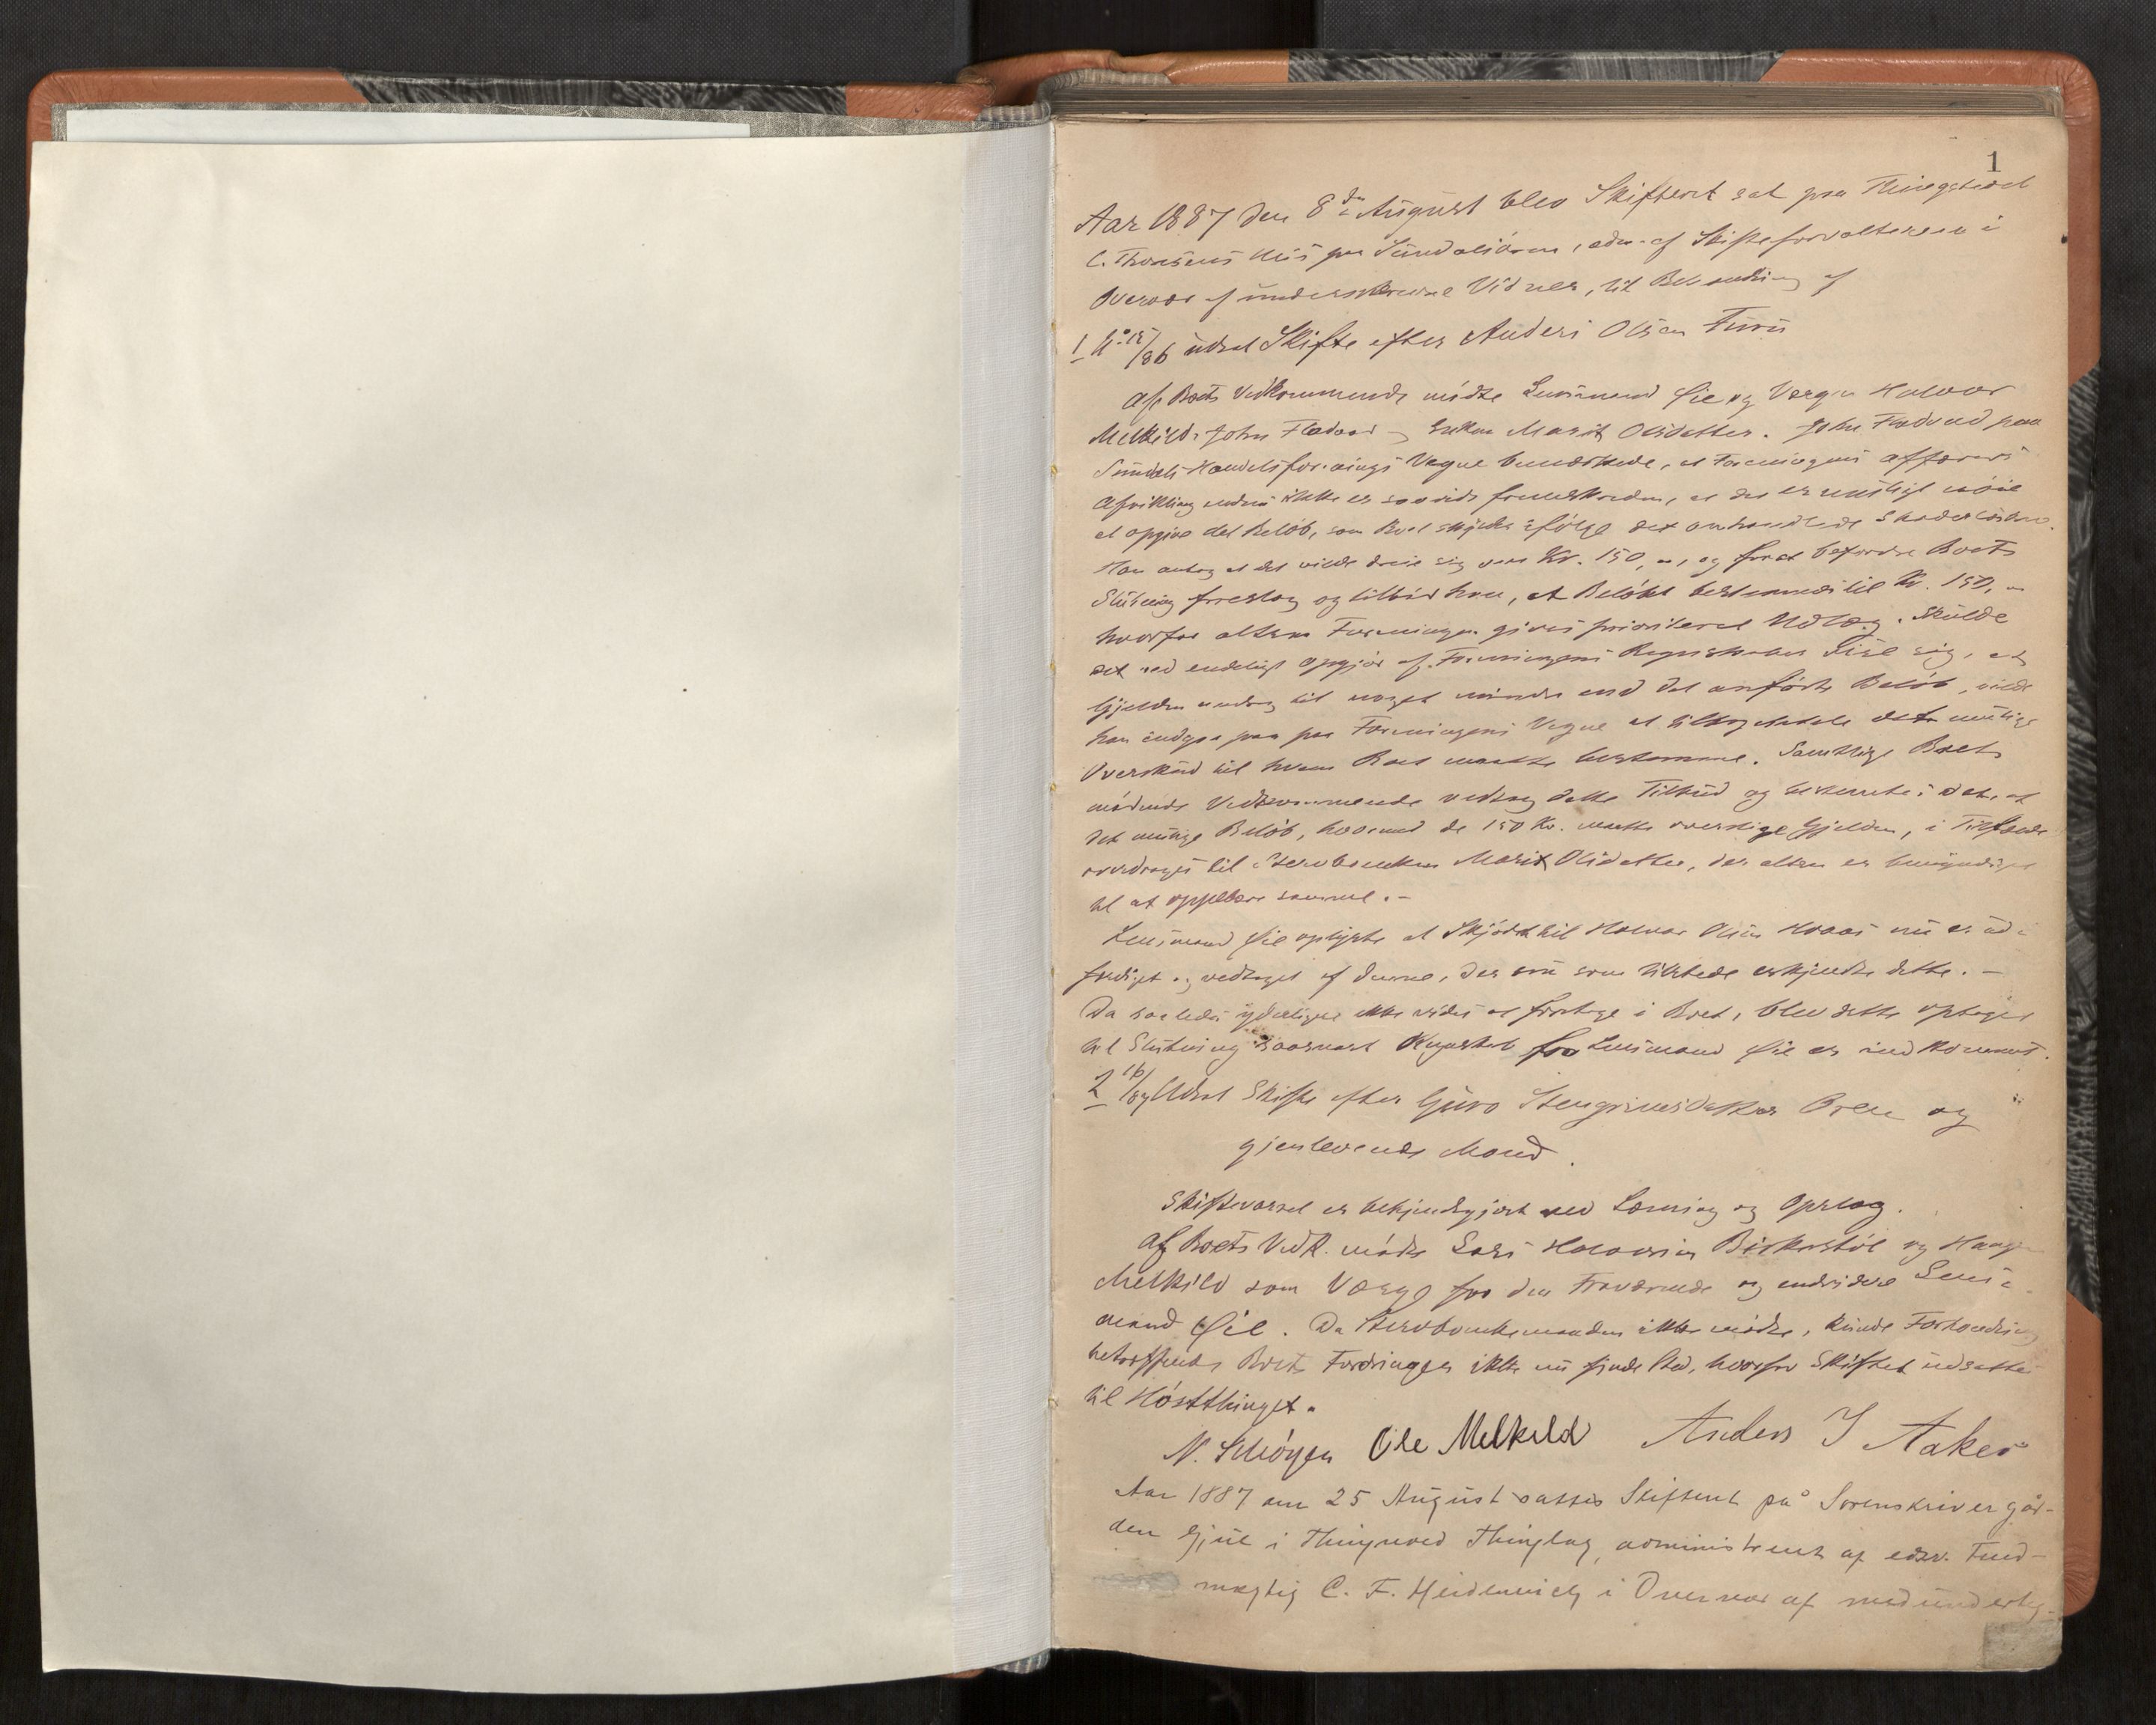 1
Aar 1887 den 8de August blev Skifteret sat paa Thingstedet
C. Thonsens Hus paa Sundalsøren, adm. af Skifteforvalteren i
Overvær af underskrevne Vidner, til Behandling af
1 No 15/86 udsat Skifte efter Anders Olsen Furu
Af Boets Vedkommende mødte Lensmand Øie og Værgen Halvor
Melkild, John Flædvad, Enken Marit Olsdatter. John Flædvad paa
Sundals Handelsforenings Vegne bemærkede, at Foreningens Affærers
Afvikling endnu ikke er saavidt fremskreden, at det er muligt nøie
at opgive det Beløb, som Boet skylder ifølge det omhandlede Skadesløsbrev.
Han antog at det vilde dreie sig om Kr. 150,00, og for at befordre Boets
Slutning foreslog og tilbød han, at Beløbet bestemmes til Kr. 150,00
hvorfor altsaa Foreningen gives prioriteret Udlæg. Skulde
det ved endeligt Opgjør af Foreningens Regnskaber vise sig, at
Gjelden androg til noget mindre end det anførte Beløb, vilde
han indgaa paa paa Foreningens Vegne at tilbagebetale det mulige
Overskud til hvem Boet maatte bestemme. Samtlige Boets
mødende Vedkommende vedtog dette Tilbud og bestemte i det, at
det mulige Beløb, hvormed de 150 Kr. maatte overstige Gjelden, i Tilfælde
overdrages til Stervboenken Marit Olsdatter, der altsaa er bemyndiget
til at oppebære samme. -
Lensmand Øie oplyste at Skjødet til Halvor Olsen Hoaas nu er ud-
færdiget og vedtaget af denne, der nu som tilstede erkjendte dette. -
Da saaledes yderligere ikke vides at foretage i Boet, blev dette optaget
til Slutning saasnart Regnskab fra Lensmand Øie er indkommet.
2 16/87 Udsat Skifte efter Guro Stengrimsdatter Oren og
gjenlevende Mand.
Skiftevarsel er bekjendtgjort ved Læsning og Opslag.
Af Boets Vedk. mødte Lars Halvorsen Birkestøl og Haagen
Melkild som Værge for den Fraværende og endvidere Lens-
mand Øie. Da Stervboenkemanden ikke mødte, kunde Forhandling
betræffende Boets Fordringer ikke nu finde Sted, hvorfor Skiftet udsattes
til Høstthinget.
N. Schøyen Ole Melkild Anders J Aaker
Aar 1887 den 25 August sattes Skifteret på Sorenskrivergår-
den Gjul i Thingvold Thinglag, administreret af edsv. Fuld-
mægtig C. F. Heidenreich i Overvær af medunderteg-